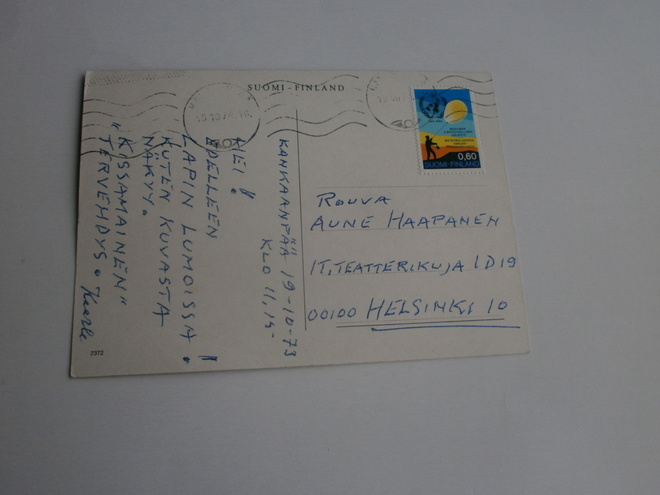 SUOMI-FINLAND
KANKAANPÄÄ 19-10-73
KLO 11,15-
HEI!
EDELLEEN
LAPIN LUMOISSA!
KUTEN KUVASTA
NÄKYY.
"KISSAMAINEN"
TERVEHDYS.
2972
0,60
SUOMI FINLAND
ROUVA
AUNE HAAPANEN
IT.TEATTERIKUJA 1 D 19
00100 HELSINKI 10